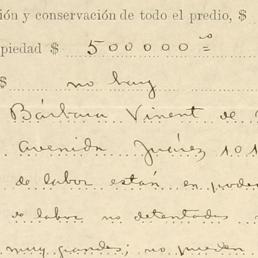 ión y conservación de todo el predio, $
piedad $ 500000=
$ no hay
Bárbara Vinent de
Avenida Juárez 101
de labor están en poder
de labor no detentadas
muy grandes; no pueden